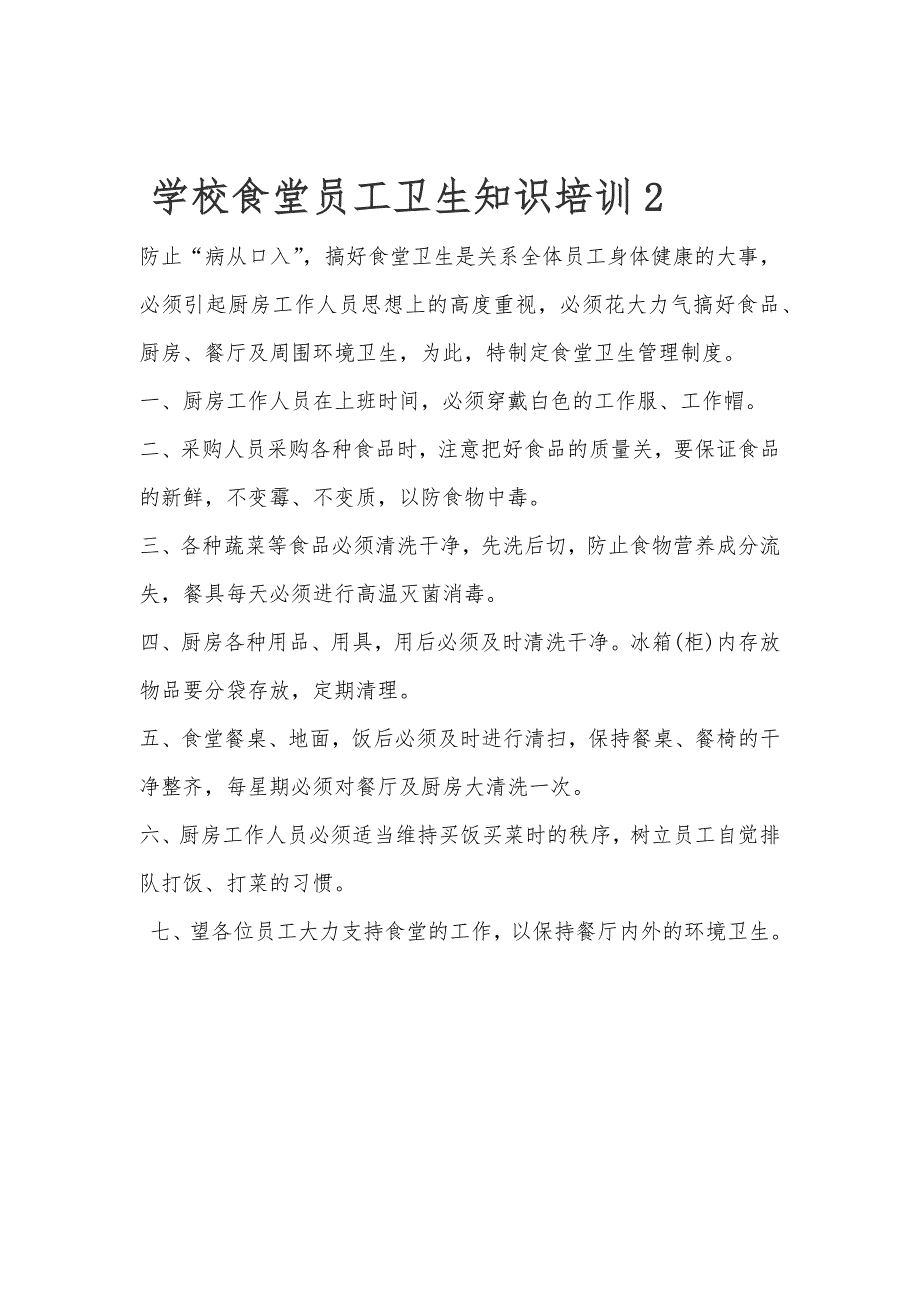 学校食堂员工卫生知识培训2
防止“病从口入”，搞好食堂卫生是关系全体员工身体健康的大事，
必须引起厨房工作人员思想上的高度重视，必须花大力气搞好食品、
厨房、餐厅及周围环境卫生，为此，特制定食堂卫生管理制度。
一、厨房工作人员在上班时间，必须穿戴白色的工作服、工作帽。
二、采购人员采购各种食品时，注意把好食品的质量关，要保证食品
的新鲜，不变霉、不变质，以防食物中毒。
三、各种蔬菜等食品必须清洗干净，先洗后切，防止食物营养成分流
失，餐具每天必须进行高温灭菌消毒。
四、厨房各种用品、用具，用后必须及时清洗干净。冰箱(柜)内存放
物品要分袋存放，定期清理。
五、食堂餐桌、地面，饭后必须及时进行清扫，保持餐桌、餐椅的干
净整齐，每星期必须对餐厅及厨房大清洗一次。
六、厨房工作人员必须适当维持买饭买菜时的秩序，树立员工自觉排
队打饭、打菜的习惯。
七、望各位员工大力支持食堂的工作，以保持餐厅内外的环境卫生。